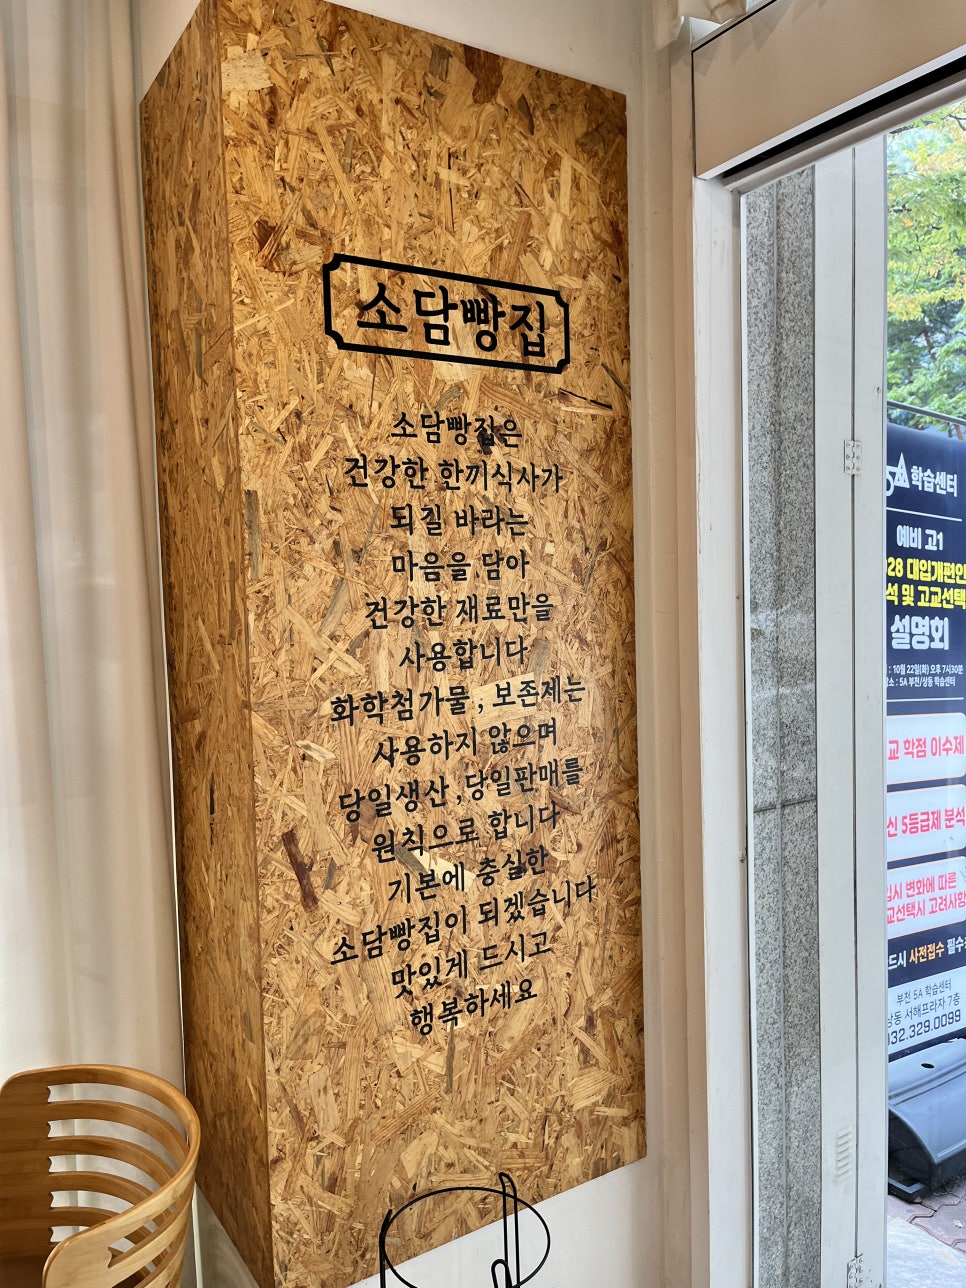 소담빵집
소담빵집은
건강한 한끼식사가
되길 바라는
마음을 담아
건강한 재료만을
사용합니다
화학첨가물, 보존제는
사용하지 않으며
당일생산, 당일판매를
원칙으로 합니다
기본에 충실한
소담빵집이 되겠습니다
맛있게 드시고
행복하세요
학습센터
예비 고1
28 대입개편안
석 및 고교선택
설명회
: 10월 22일(화) 오후 7시30분
소 : 5A 부천/상동 학습센터
교 학점 이수제
신 5등급제 분석
입시 변화에 따른
교선택시 고려사항
드시 사전접수 필수
부천 5A 학습센터
상동 서해프라자 7층
032.329.0099